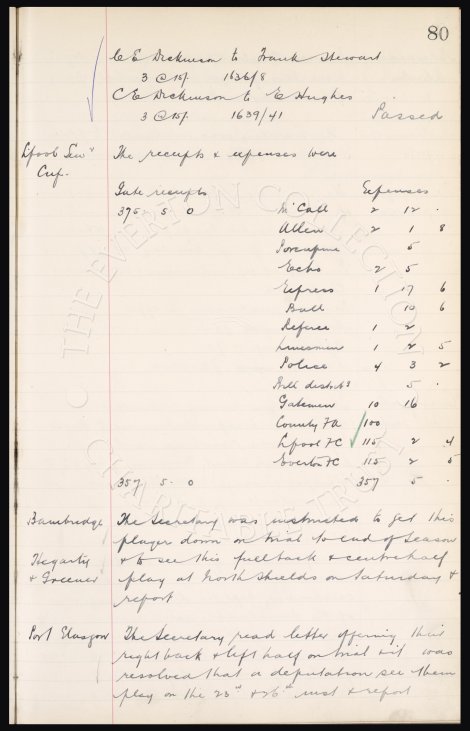 80
C E Dickinson to Frank Stewart
3 @ 15/. 1636/8
C E Dickinson to E Hughes
3 @ 15/. 1639/41 Passed
Lpool Senr The receipts & expenses were
Cup.
Gate receipts Expenses
375 5 0 McCall 2 12 .
Allen 2 1 8
Porcupine 5
Echo 2 5
Express 1 17 6
Ball 10 6
Referee 1 2
Linesmen 1 2 5
Police 4 3 2
Bill distrbts 5 .
Gatemen 10 16
County FA 100
Lpool FC 115 2 4
Everton FC 115 2 5
357 5 0 357 5 .
Bambridge The Secretary was instructed to get this
player down on trial to end of season
Hegarty & to see this fullback & centrehalf
& Greener play at North Shields on Saturday &
report
Port Glasgow The Secretary read letter offering their
right back & left half on trial & it was
resolved that a deputation see them
play on the 23rd & 26th inst & report
THE EVERTON COLLECTION
CHARITABLE TRUST